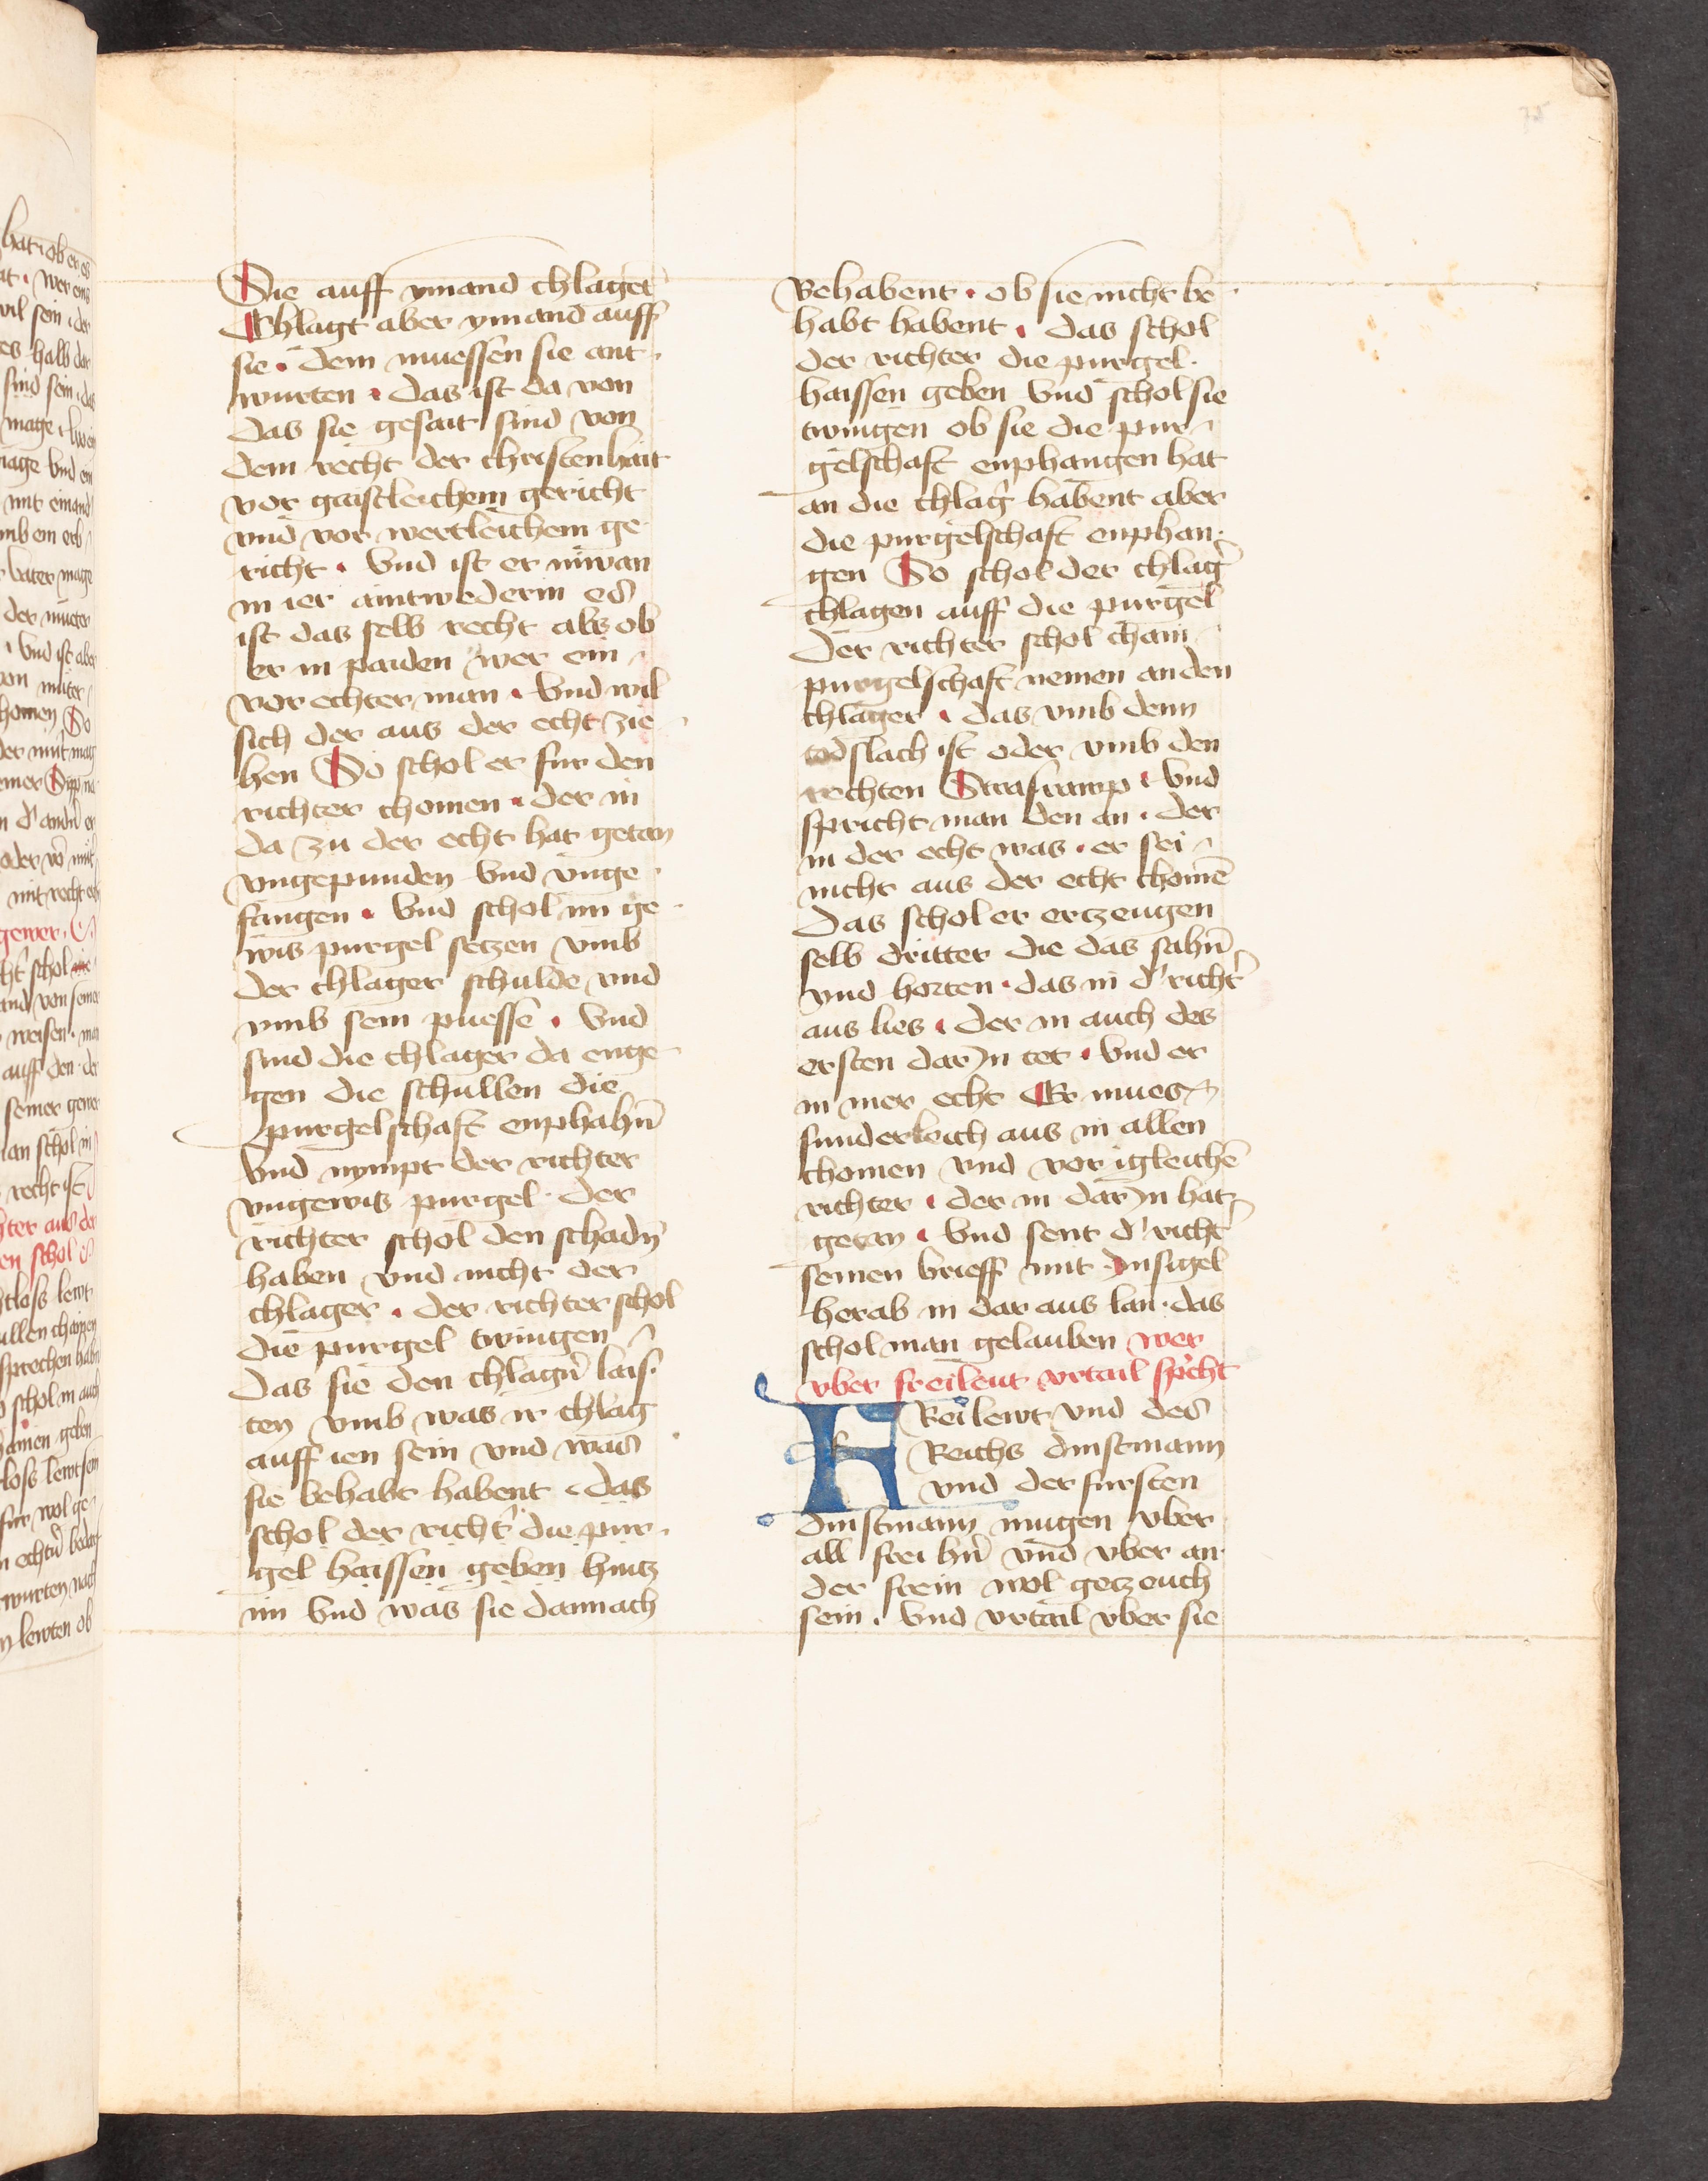 Die auff ymand chlagent
Chlagt aber ymand auff
sie · dem muessen sie ant
wurten · das ist da von
das sie gesait sind von
dem recht der christenhait
vor gaistleichem gericht
vnd vor wertleichem ge
richt · Vnd ist er niwan
in ier aintwederm es
ist das selb recht als ob
er in paiden wer ein
vorechter man · Vnd wil
sich der aus der echt zie
hen So schol er fur den
richter chomen · der in
da zu der echt hat getan
vngepunden Vnd vnge
fangen · Vnd schol im ge
wis purgel setzen vmb
der chlager schulde vnd
vmb sein puesse · Vnd
sind die chlager da enge
gen die schullen die
purgelschaft enphahn̄
Vnd nympt der richter
vngewis purgel · der
richter schol den schadn̄
haben vnd nicht der
chlager · der richter schol
die purgel twingen
das sie den chlagn̄ lais
ten vmb was ir chlag
auff ien sein vnd was
sie behabt habent · das
schol der richt̄ die pur
gel haissen geben hintz
im Vnd was sie darnach
Behabent · ob sie nicht be
habt habent · das schol
der richter die purgel
haissen geben Vnd schol sie
twingen ob sie die pur
gelschaft enphangen hat
an die chlaḡ habent aber
die purgelschaft enphan
gen So schol der chlaḡ
chlagen auff die purgel
Der richter schol chain
purgelschaft nemen an den
chlager · das vmb denn
todslach ist oder vmb den
rechten Strasraup · Vnd
spricht man den an · der
in der echt was · er sei
nicht aus der echt chomē
Das schol er ertzeugen
selb dritter die das sahn̄
vnd horten · das in d' richt̄
aus lies · der in auch des
ersten darjn tet · Vnd er
in mer echt Er mues
sunderleich aus in allen
chomen vnd vor igleichē
richter · der in darjn hat
getan · Vnd sent d' richt̄
seinen brieff mit Insigel
herab in dar aus lan · das
schol man gelauben wer
vber freileut vrtail sp̄cht
FReilewt vnd des
Reichs dinstmann
vnd der fursten
dinstmann mugen vber
all frei hn̄ vnd vber an
der frein wol getzeuch
sein · Vnd vrtail vber sie